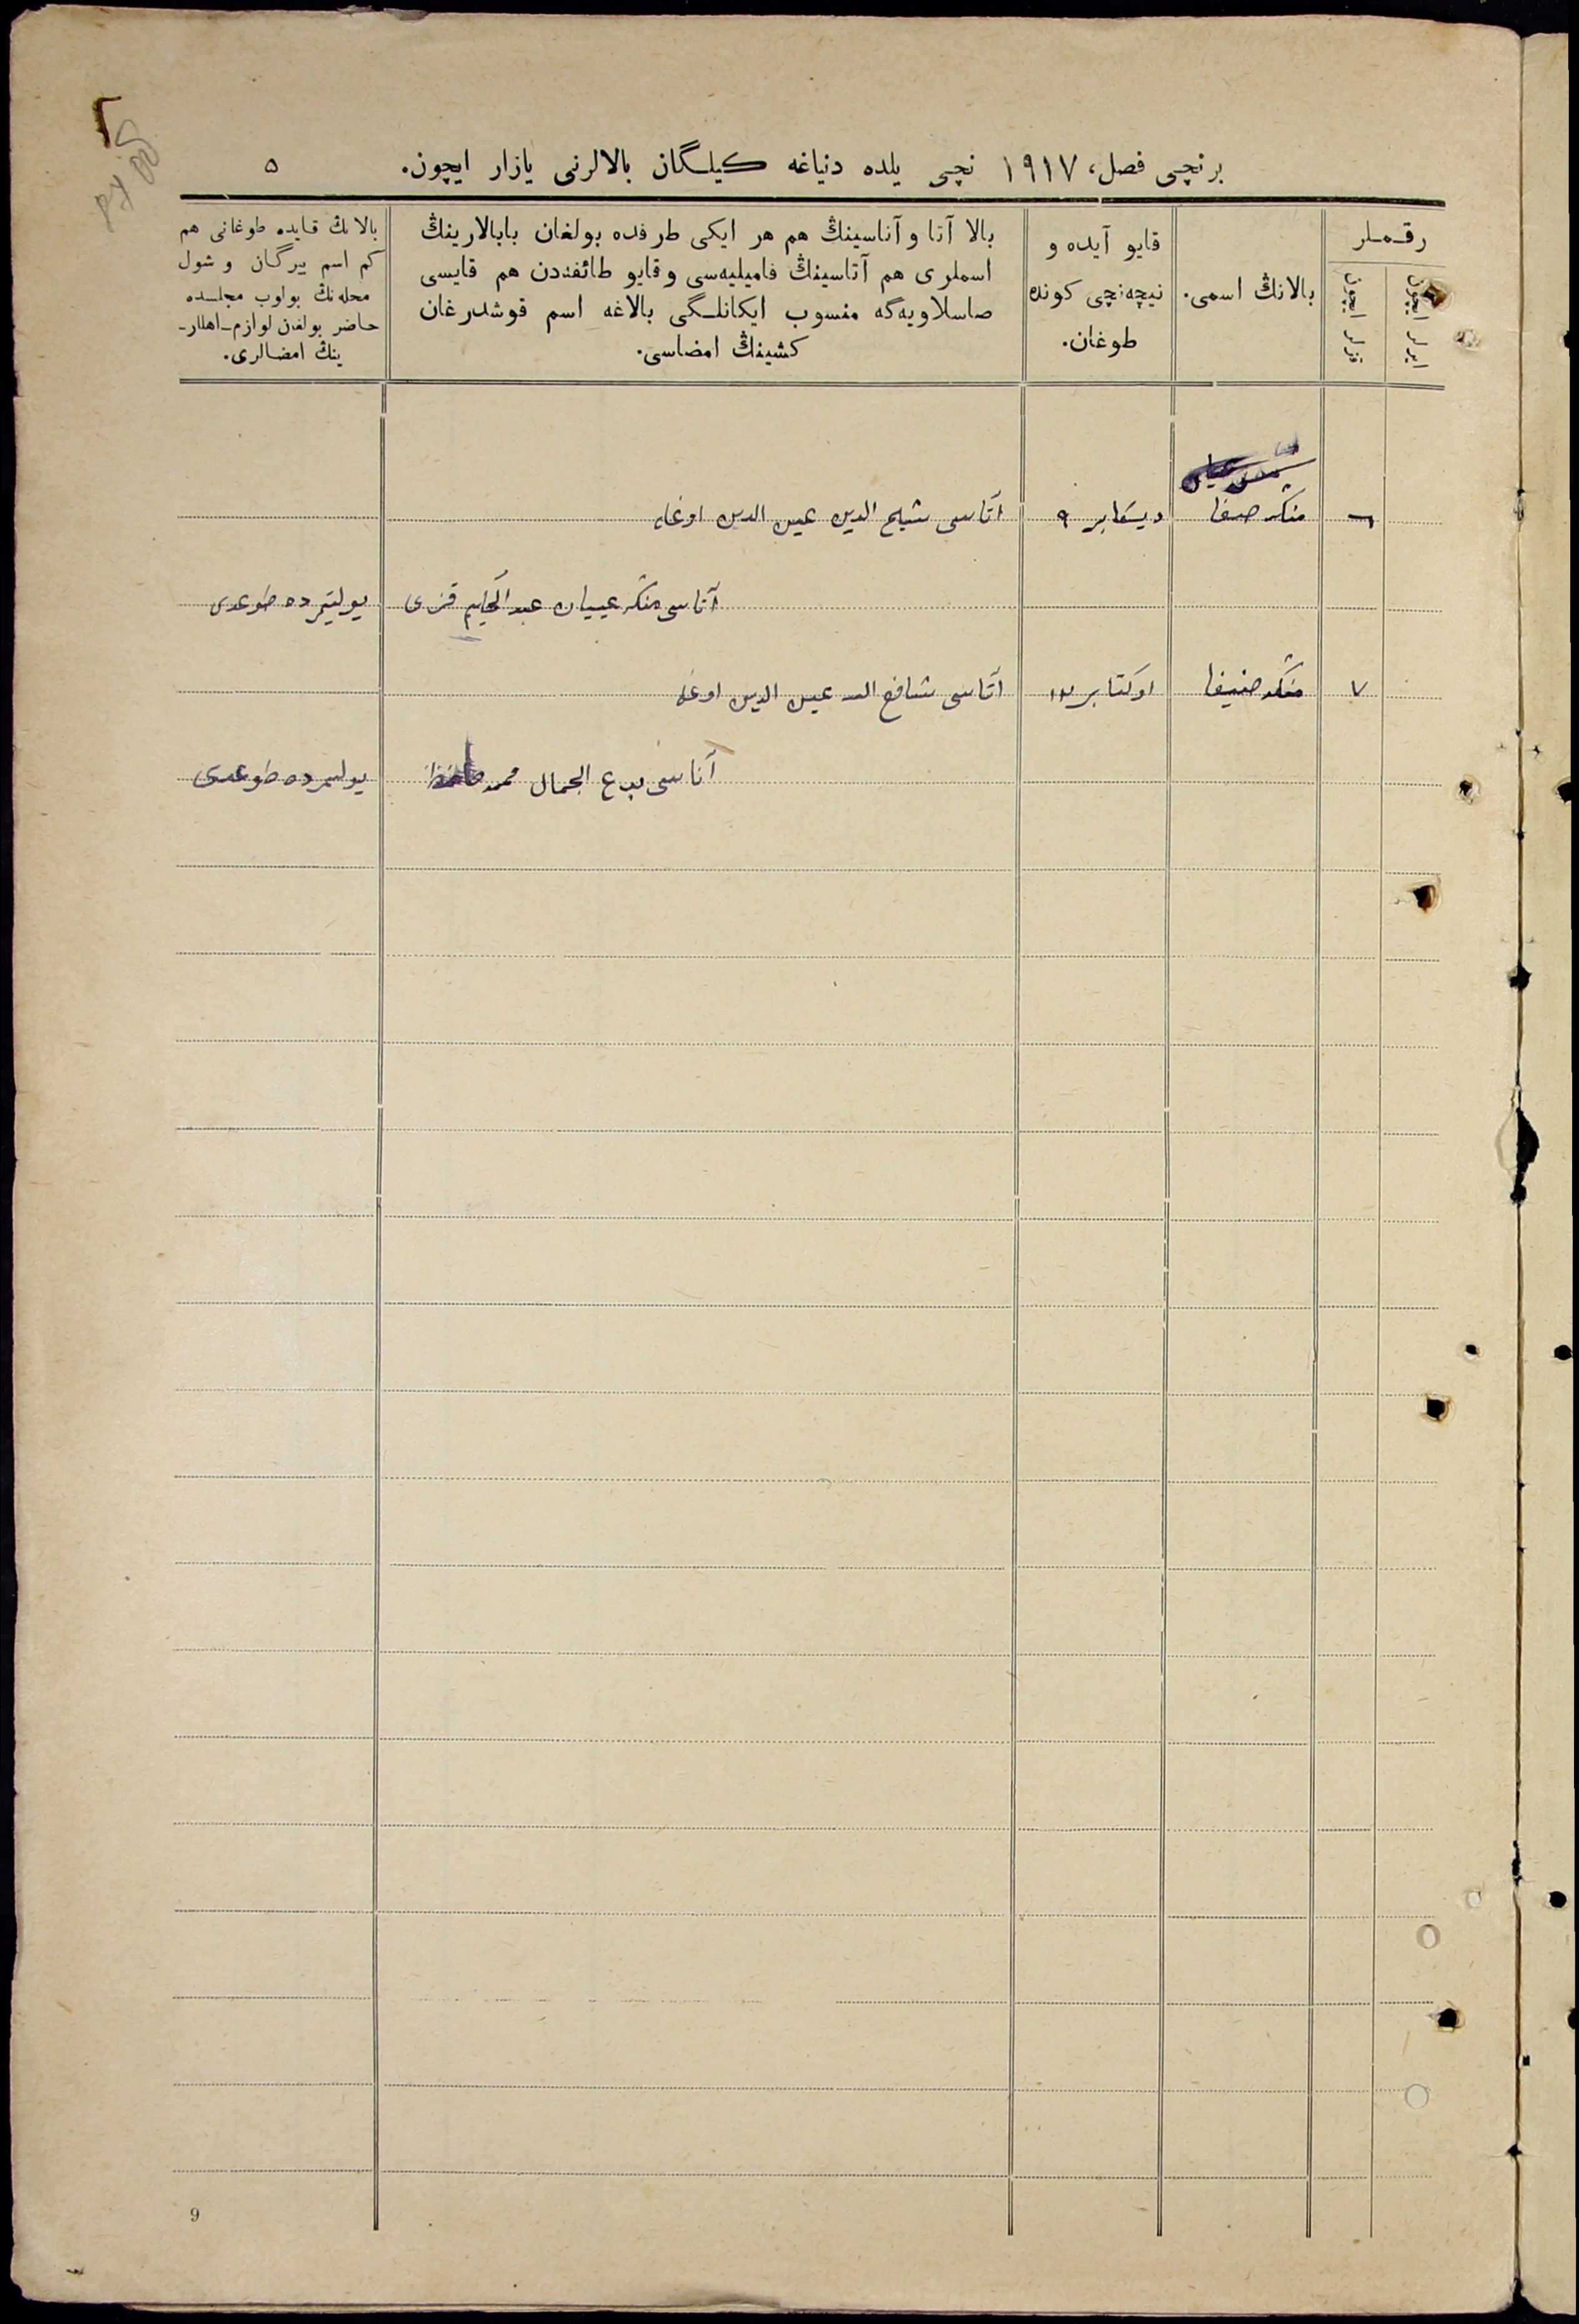 برنچی فصل، ١٩١٧ نچی یلده دنیاغه کیلگان بالالرنی یازار ایچون.
٥
رقملر
ایرلر ایچون
قزلر ایچون
بالانڭ اسمی.
قایو آیده و
نیچه‌نچی کونده
طوغان.
بالا آتا و آناسینڭ هم هر ایکی طرفده بولغان بابالارینڭ
اسملری هم آتاسینڭ فامیلیه‌سی و قایو طائفه‌دن هم قایسی
صاسلاویه‌گه منسوب ایکانلگی بالاغه اسم قوشدرغان
کشینڭ امضاسی.
بالانڭ قایده طوغانی هم
کم اسم بیرگان و شول
محله‌نڭ بولوب مجلسده
حاضر بولغان لوازم اهللار-
ینڭ امضالری.
٦ منڭ صفا دیکابر ٩ آتاسی شیخ الدین عین الدین اوغلی
آناسی منڭ عبد الحکیم قزی یولیتمرده طوغدی
٧ منڭ حنیفا اوکتابر ١٣ آتاسی شافع الدین عین الدین اوغلی
آناسی بدیع الجمال محمد حافظ یولیتمرده طوغدی
9